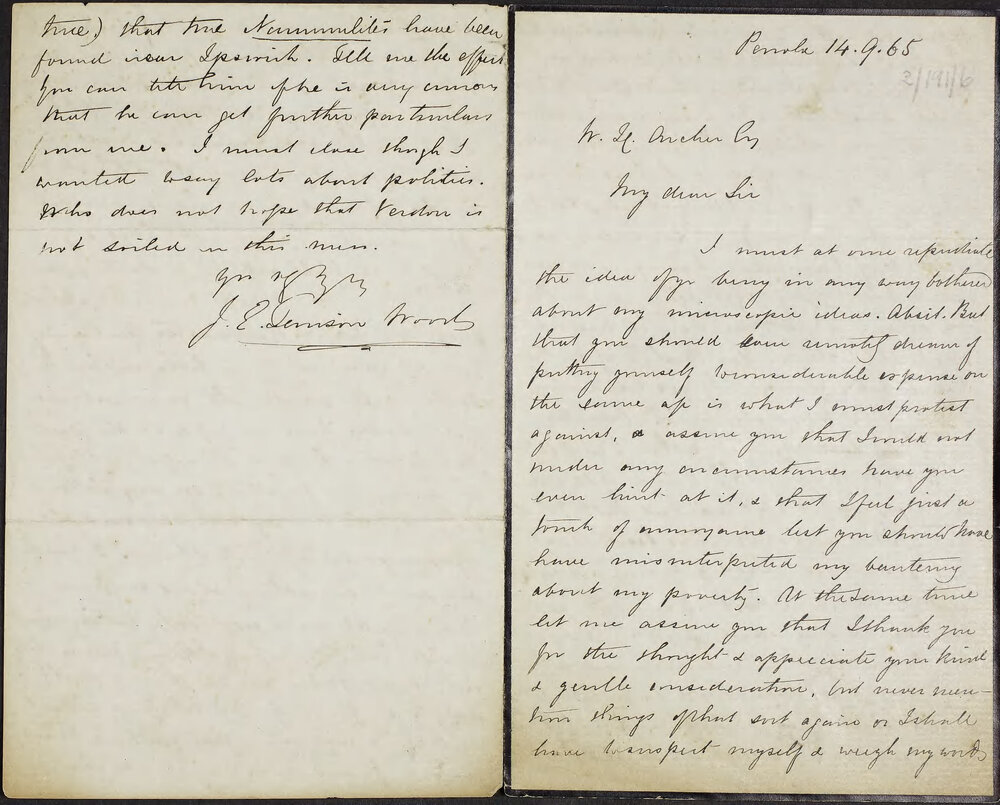 true.) that true Nummulites have been
found near Ipswich. Tell me the effect
you can tell him if he is any curious
that he can get further particulars
from me. I must close though I
wanted to say lots about politics.
Who does not hope that Verdon is
not soiled in this mess.
J. E. Tenison Woods
Penola 14.9.65
2/191/6
W. H. Archer Esq
My dear Sir
I must at once repudiate
the idea of yr being in any way bothered
about my microscopic ideas. Absit. But
that you should even remotely dream of
putting yourself to considerable expense on
the same a/c is what I must protest
against, & assure you that I would not
under any circumstances have you
even hint at it, & that I feel just a
touch of annoyance lest you should have
have misinterpreted my bantering
about my poverty. At the same time
let me assure you that I thank you
for the thought & appreciate your kind
& gentle consideration, but never men-
tion things of that sort again or I shall
have to inspect myself & weigh my words